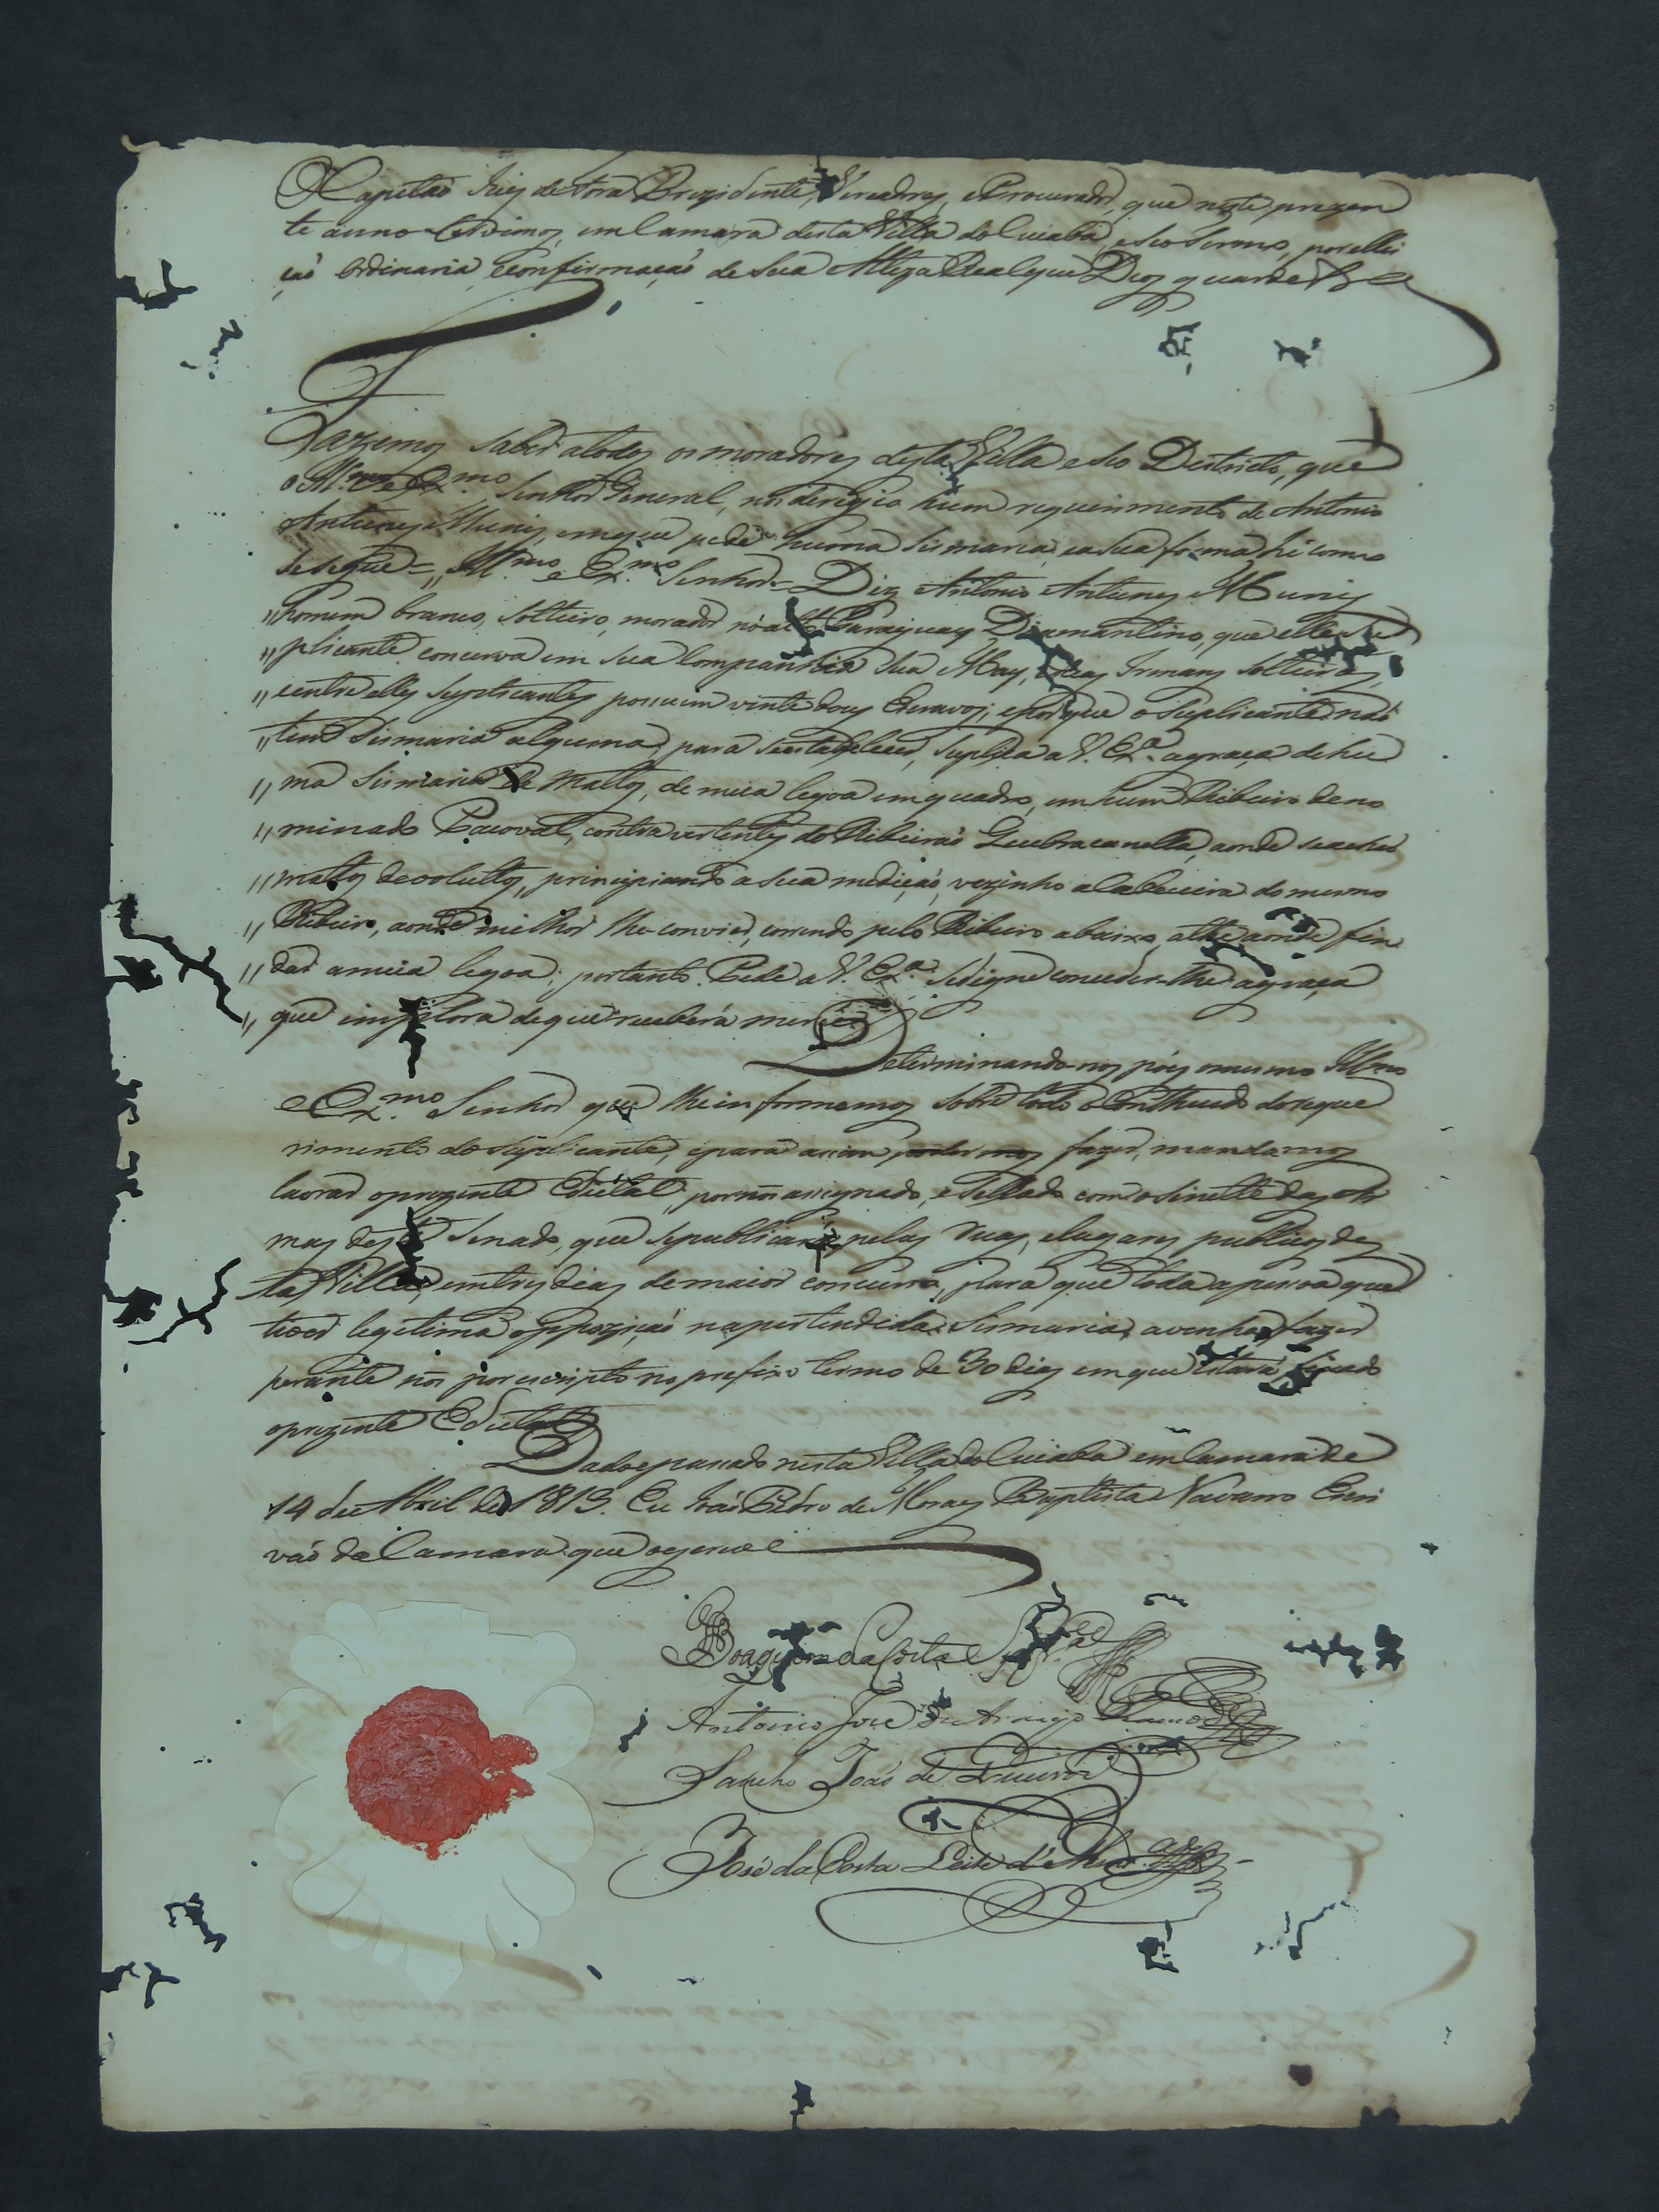 O Capitaõ Juiz de Fora Prezidente, Vereadores, e Procurador, que neste prezen
te anno servimos, em Camara desta Villa do Cuiabá, e seo termo, por ellei
çaõ Ordinaria, e confirmaçaõ de Sua Alteza Real que Deos guarde &ª
Fazemos saber a todos os moradores desta Villa e seo Destricto, que
o Illmo e Exmo Senhor General, nos deregio hum requerimento de Antonio
Antunes Muniz, em que pede huma sismaria, e a sua forma hé como
se segue = „ Illmo e Exmo Senhor = Diz Antonio Antunes Muniz
„ homem branco, solteiro, morador no alto Paraguay Diamantino, que elle Su
„ plicante conserva em sua Companhia sua May, e duas Irmans solteiras,
„ e entre elles Suplicantes possuem vinte dous Escravos; e por que o Suplicante naõ
„ tem Sismaria alguma, para se estabelecer, suplica a V. Exª a graça de hu
„ ma sismaria de Mattos, de meia legoa em quadra, em hum Ribeiro deno
„ minado Pacoval, contravertentes do Ribeiraõ Quebracanella, aonde se achaõ
„ mattos devoluttos, principiando a sua mediçaõ, vezinho a Cabeceira do mesmo
„ Ribeiro, aonde milhor lhe convier, correndo pelo Ribeiro abaixo, athe aonde fin
„ dar a meia legoa; portanto. Pede a V. Exª se digne conceder-lhe a graça
„ que implora de que receberá mercê.
Determinando-nos pois o mesmo Illmo
e Exmo Senhor que lhe informemos sobre todo o Contheudo do reque
rimento do Suplicante, e para assim podermos fazer, mandamos
lavrar o prezente Edictal por nós assignado, e Sellado com o sinette das Ar
mas deste Senado, que se publicará pelas ruas, e lugares publicos des
ta Villa, em tres dias de maior concurso, para que toda a pessoa que
tiver legitima oppoziçaõ na pertendida Sismaria, a venha fazer
perante nós por escripto no prefixo termo de 30 dias em que estará fixado
o prezente Edictal.
Dado e passado nesta Villa do Cuiabá em Camara de
14 de Abril de 1813. Eu Joaõ Pedro de Moraes Baptista Navarro Escri
vaõ da Camara que o escrevi
Joaquim da Costa
Antonio José de Araujo Ramos
Sancho Joaõ de Queiroz
José da Costa Leite d'Alm.